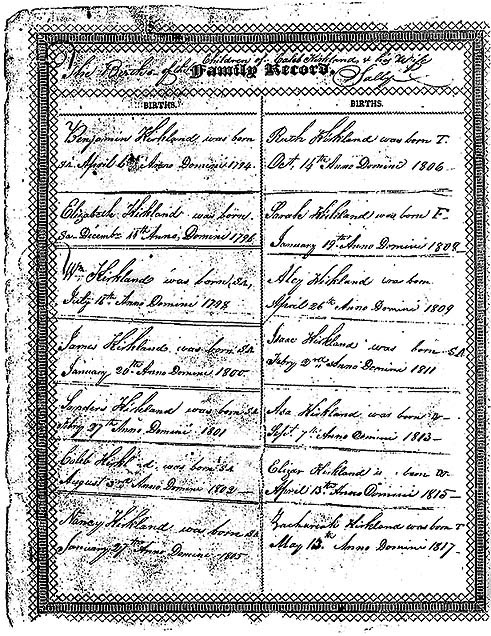 The Births of the Children of Caleb Kirkland & his Wife
Family Record.
Sally
BIRTHS.
Benjamin Kirkland was born
Sa. April 6th Anno Domini 1794.
Elizabeth Kirkland was born
Sa. Decembr 18th Anno Domini 1796
Wm Kirkland was born Sa,
July 14th Anno Domini 1798
James Kirkland was born Sa
January 26th Anno Domini 1800
Sanders Kirkland was born Sa
Febry 27th Anno Domini 1801
was born Sa
August 3rd Anno Domini 1802
Nancy Kirkland was born Sa
January 27th Anno Domini 1805
BIRTHS.
Ruth Kirkland was born T.
Oct. 14th Anno Domini 1806
Sarah Kirkland was born F.
January 19th Anno Domini 1808
Aley Kirkland was born
April 26th Anno Domini 1809
Isaac Kirkland was born SA
Febry 2nd Anno Domini 1811
Asa Kirkland was born W
Sept. 7th Anno Domini 1813
Kirkland is born W.
April 13th Anno Domini 1815
Zachariah Kirkland was born T
May 13th Anno Domini 1817